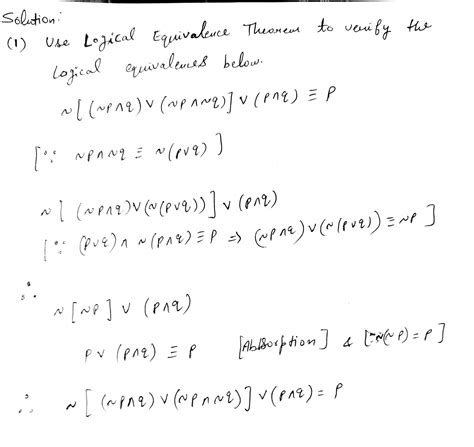 Solution:
(1) Use Logical Equivalence Theorem to verify the
Logical equivalences below.
~[(~p∧q)∨(~p∧~q)]∨(p∧q) ≡ p
[∵ ~p∧~q ≡ ~(p∨q)]
~[(~p∧q)∨(~(p∨q))]∨(p∧q)
[∵ (p∨q)∧~(p∧q)≡p ⇒ (~p∧q)∨(~(p∨q))≡~p]
∴ ~[~p]∨(p∧q)
p∨(p∧q) ≡ p [Absorption] & [~(~p)=p]
∴ ~[(~p∧q)∨(~p∧~q)]∨(p∧q) = p